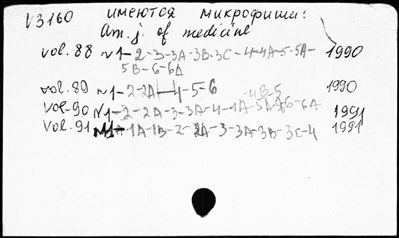 V3160 имеются микрофиши:
Am. j. of medicine
vol. 88 N1-2-3-3A-3B-3C-4-4A-5-5A- 1990
5B-6-6A
vol. 89 N1-2-2A-4-5-6 -4B-5 1990
vol. 90 N1-2-2A-3-3A-4-4A-5A- 6-6A 1991
vol. 91 1A-1B-2-2A-3-3A-3B-3C-4 1991